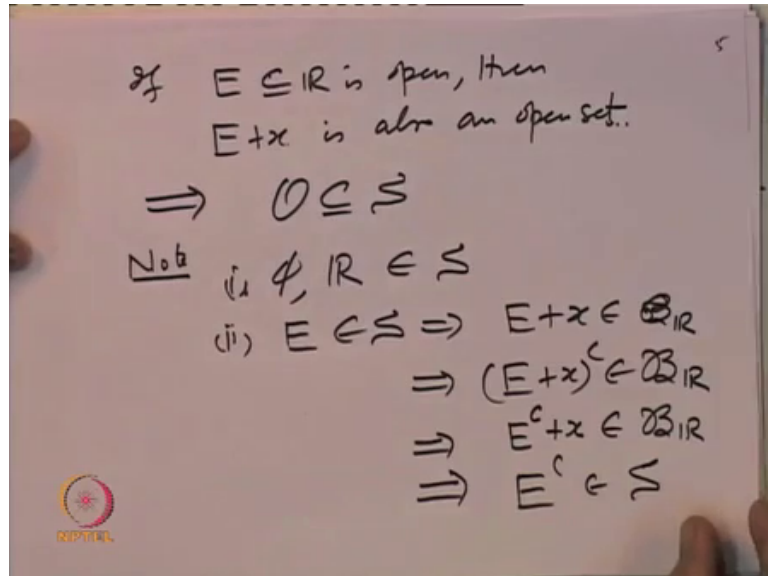 5
If E ⊆ ℝ is open, then
E+x is also an open set.
⟹ O ⊆ S
Note (i) φ, ℝ ∈ S
(ii) E ∈ S ⟹ E+x ∈ B_ℝ
⟹ (E+x)^c ∈ B_ℝ
⟹ E^c+x ∈ B_ℝ
⟹ E^c ∈ S
NPTEL